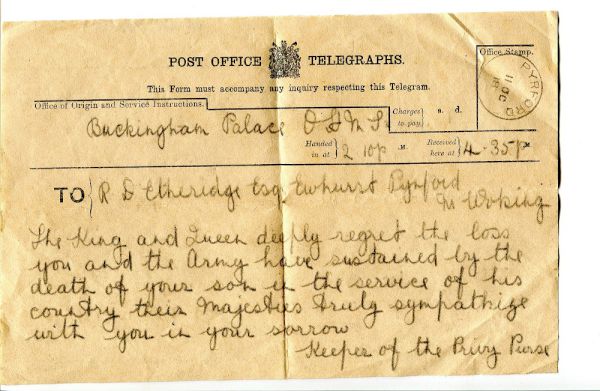 POST OFFICE TELEGRAPHS.
This Form must accompany any inquiry respecting this Telegram.
Office Stamp.
PYRFORD
11 OC
Office of Origin and Service Instructions.
Buckingham Palace OHMS
Charges to pay s. d.
Handed in at 2 10p M. Received here at 4.35p M.
TO R D Etheridge Esq Ewhurst Pyrford
Nr Woking
The King and Queen deeply regret the loss
you and the Army have sustained by the
death of your son in the service of his
country their Majesties truly sympathize
with you in your sorrow
Keeper of the Privy Purse